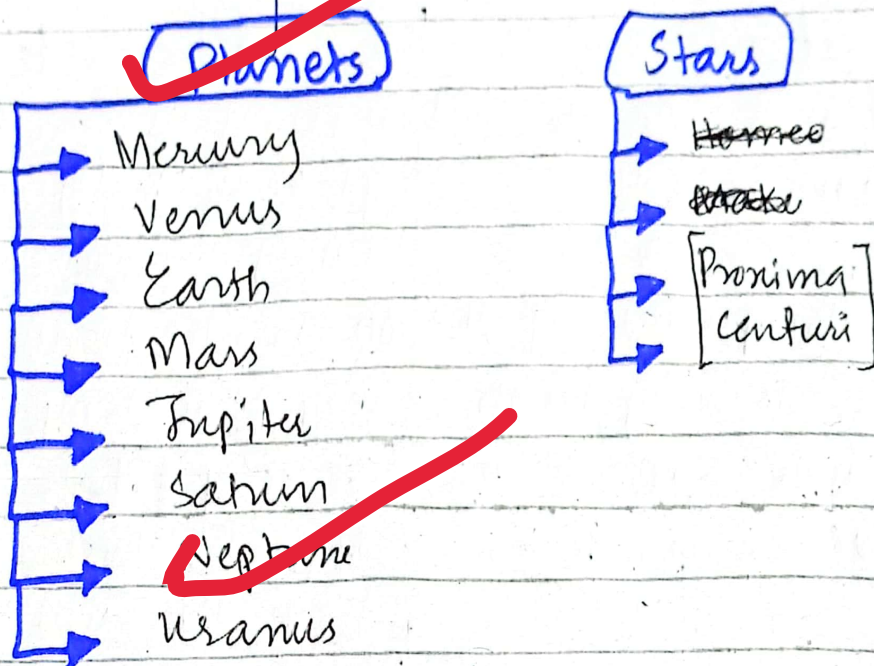 Planets
Mercury
Venus
Earth
Mars
Jupiter
Saturn
Neptune
Uranus
Stars
[Proxima
Centuri]